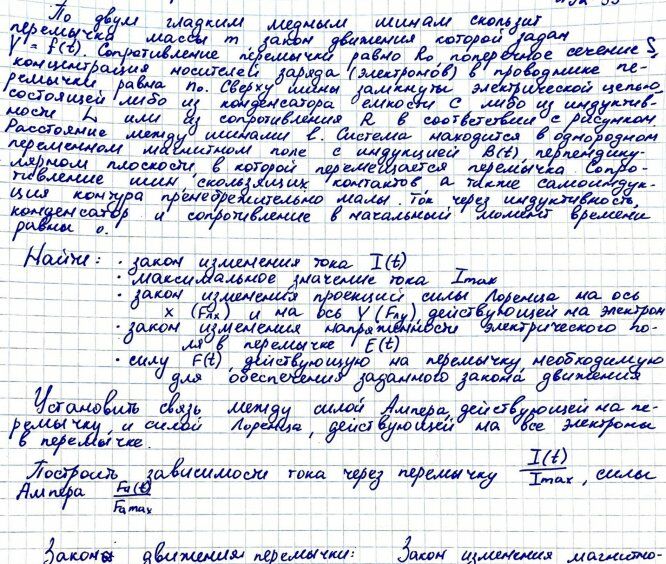 По двум гладким медным шинам скользит
перемычка массы m закон движения которой задан
y = f(t). Сопротивление перемычки равно R₀, поперечное сечение S,
концентрация носителей заряда (электронов) в проводнике пе-
ремычки равна n₀. Сверху шины замкнуты электрической цепью,
состоящей либо из конденсатора емкости C либо из индуктив-
ности L или из сопротивления R в соответствии с рисунком
Расстояние между шинами l. Система находится в однородном
переменном магнитном поле с индукцией B(t), перпендику-
лярном плоскости, в которой перемещается перемычка. Сопро-
тивление шин, скользящих контактов, а также самоиндук-
ция контура пренебрежительно малы. Ток через индуктивность,
конденсатор и сопротивление в начальный момент времени
равны 0.
Найти: · закон изменения тока I(t)
· максимальное значение тока Imax
· закон изменения проекций силы Лоренца на ось
x (Fлx) и на ось Y (Fлy), действующей на электрон
· закон изменения напряженности электрического по-
ля в перемычке E(t)
· силу F(t), действующую на перемычку, необходимую
для обеспечения заданного закона движения
Установить связь между силой Ампера, действующей на пе-
ремычку, и силой Лоренца, действующей на все электроны
в перемычке.
Построить зависимости тока через перемычку I(t)/Imax, силы
Ампера Fa(t)/Famax
Законы движения перемычки: Закон изменения магнитно-